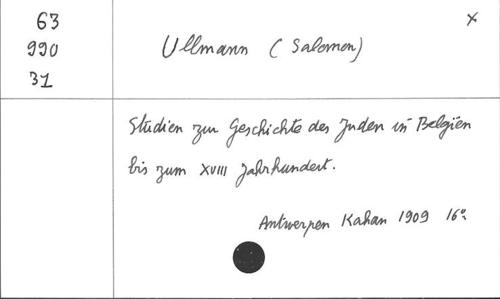 63
990
31
Ullmann (Salomon)
x
Studien zur Geschichte des Juden in Belgien
bis zum XVIII Jahrhundert.
Antwerpen Kahan 1909 16°.